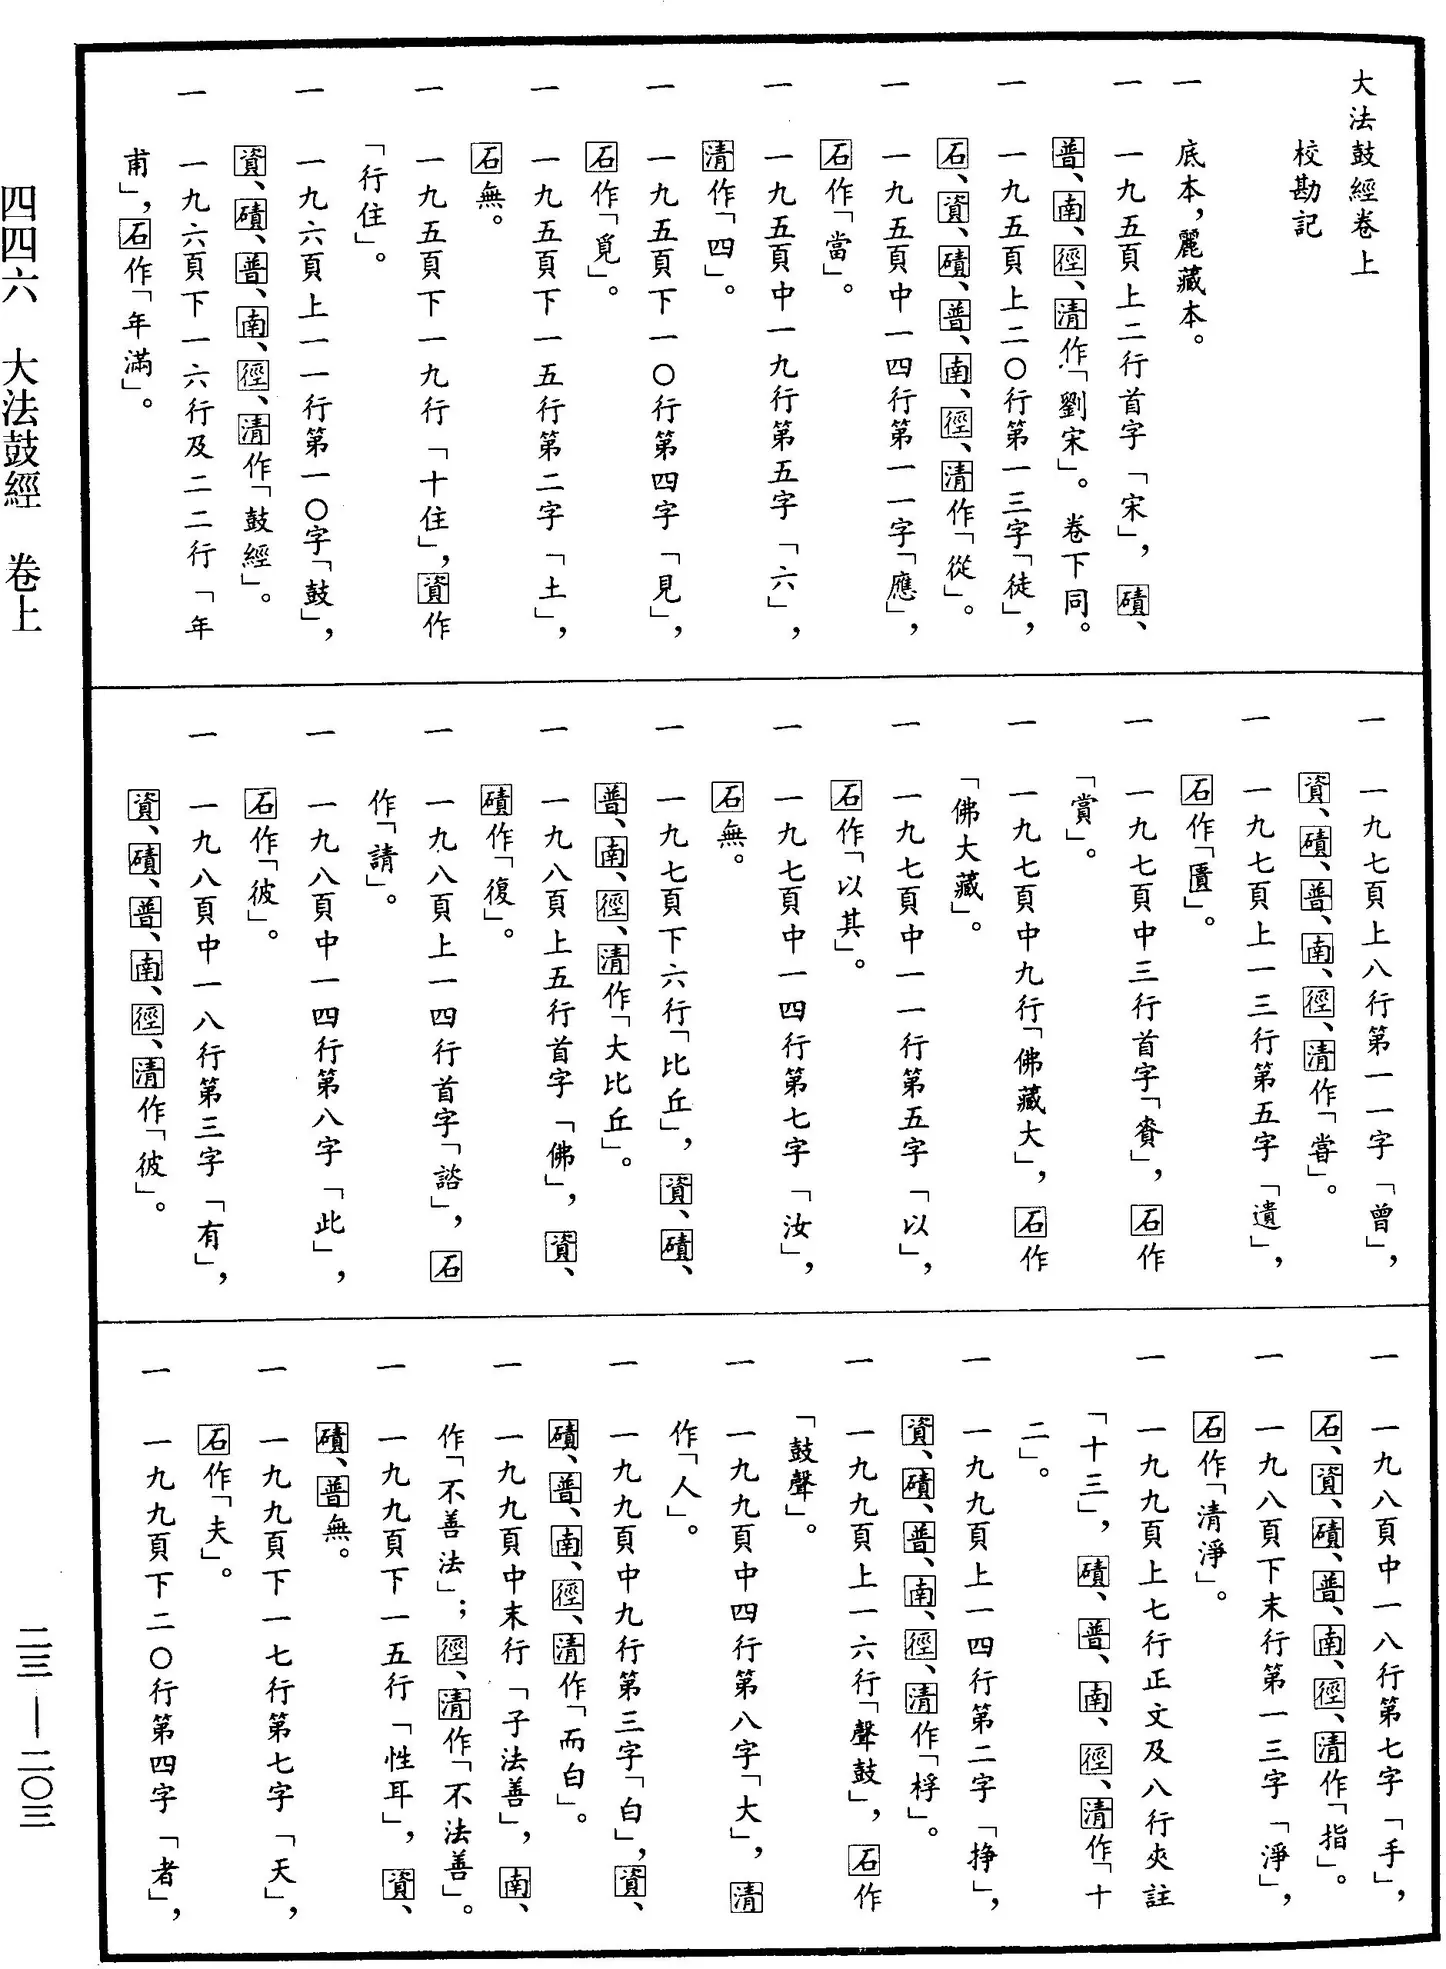 大法鼓經卷上
校勘記
一　底本，麗藏本。
一　一九五頁上二行首字「宋」，磧、
普、南、徑、清作「劉宋」。卷下同。
一　一九五頁上二〇行第一三字「徒」，
石、資、磧、普、南、徑、清作「從」。
一　一九五頁中一四行第一一字「應」，
石作「當」。
一　一九五頁中一九行第五字「六」，
清作「四」。
一　一九五頁下一〇行第四字「見」，
石作「覓」。
一　一九五頁下一五行第二字「土」，
石無。
一　一九五頁下一九行「十住」，資作
「行住」。
一　一九六頁上一一行第一〇字「鼓」，
資、磧、普、南、徑、清作「鼓經」。
一　一九六頁下一六行及二二行「年
甫」，石作「年滿」。
一　一九七頁上八行第一一字「曾」，
資、磧、普、南、徑、清作「甞」。
一　一九七頁上一三行第五字「遺」，
石作「匱」。
一　一九七頁中三行首字「賚」，石作
「賞」。
一　一九七頁中九行「佛藏大」，石作
「佛大藏」。
一　一九七頁中一一行第五字「以」，
石作「以其」。
一　一九七頁中一四行第七字「汝」，
石無。
一　一九七頁下六行「比丘」，資、磧、
普、南、徑、清作「大比丘」。
一　一九八頁上五行首字「佛」，資、
磧作「復」。
一　一九八頁上一四行首字「諮」，石
作「請」。
一　一九八頁中一四行第八字「此」，
石作「彼」。
一　一九八頁中一八行第三字「有」，
資、磧、普、南、徑、清作「彼」。
一　一九八頁中一八行第七字「手」，
石、資、磧、普、南、徑、清作「指」。
一　一九八頁下末行第一三字「淨」，
石作「清淨」。
一　一九九頁上七行正文及八行夾註
「十三」，磧、普、南、徑、清作「十
二」。
一　一九九頁上一四行第二字「挣」，
資、磧、普、南、徑、清作「桴」。
一　一九九頁上一六行「聲鼓」，石作
「鼓聲」。
一　一九九頁中四行第八字「大」，清
作「人」。
一　一九九頁中九行第三字「白」，資、
磧、普、南、徑、清作「而白」。
一　一九九頁中末行「子法善」，南、
作「不善法」；徑、清作「不法善」。
一　一九九頁下一五行「性耳」，資、
磧、普無。
一　一九九頁下一七行第七字「天」，
石作「夫」。
一　一九九頁下二〇行第四字「者」，
四四六　大法鼓經　卷上
二三—二〇三